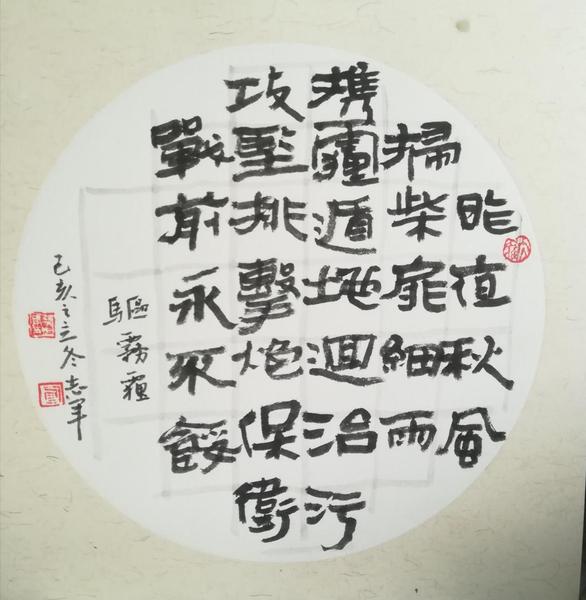 昨夜秋風
掃柴扉細雨
携霾遁地迴治污
攻堅排擊炮保衛
戰前永不餒
驅霧霾
己亥之立冬志军